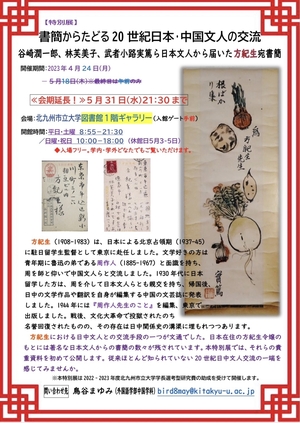 【特別展】
書簡からたどる 20 世紀日本・中国文人の交流
谷崎潤一郎、林芙美子、武者小路実篤ら日本文人から届いた方紀生宛書簡
開催期間：2023 年 4 月 24 日（月）
― 5 月 18 日（木）※最終日は午前のみ
≪会期延長！≫５月 31 日(水)21:30 まで
会場：北九州市立大学図書館１階ギャラリー（入館ゲート手前）
開館時間：平日･土曜 8:55－21:30
／日曜･祝日 10:00－18:00 （休館日5月3-5日）
◆入場フリー。学内・学外どなたでもご覧いただけます。
方紀生（1908-1983）は、日本による北京占領期（1937-45）
に駐日留学生監督として東京に赴任しました。文学好きの方は
青年期に魯迅の弟である周作人（1885-1967）と面識を持ち、
周を師と仰いで中国文人らと交流しました。1930 年代に日本
留学した方は、周を介して日本文人らとも親交を持ち、帰国後、
日中の文学作品や翻訳を自身が編集する中国の文芸誌に発表
しました。1944 年には『周作人先生のこと』を編集し、東京で
出版しました。戦後、文化大革命で投獄されたのち
名誉回復されたものの、その存在は日中関係史の溝渠に埋もれつつあります。
方紀生における日中文人との交流手段の一つが文通でした。日本在住の方紀生令嬢の
もとには著名な日本文人からの書簡の数々が残されています。本特別展では、それらの貴
重資料を初めて公開します。従来ほとんど知られていない 20 世紀日中文人交流の一端を
感じてみませんか。
※本特別展は 2022‐2023 年度北九州市立大学学長選考型研究費の助成を受けて開催します。
問い合わせ先 鳥谷まゆみ（外国語学部中国学科） bird8may@kitakyu-u.ac.jp